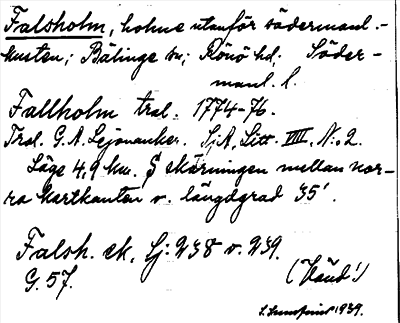 Falsholm, holme utanför södermanl.-
kusten; Bälinge sn; Rönö hd; Söder-
manl. l.
Fallholm tral. 1774-76.
Tral. G. A. Lejonanker. SjA, Litt. VIII, N:o 2.
Läge 4,9 km. S skärningen mellan nor-
ra kartkanten o. längdgrad 35'.
Falsh. ek. bl: 238 o. 239.
G. 57.
(Vänd!)
1939.